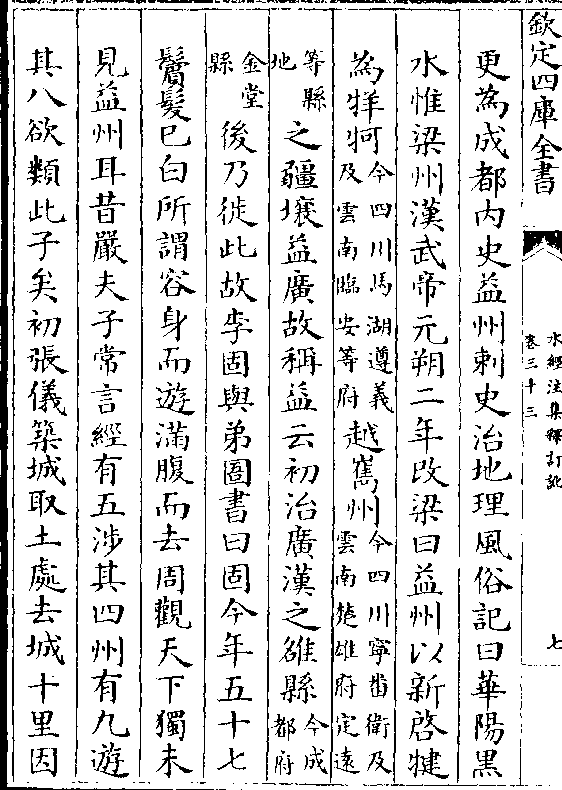 欽定四庫全書
水經注集釋訂訛
卷三十三
七
更為成都内史益州刺史治地理風俗記曰華陽黑
水惟梁州漢武帝元朔二年改梁曰益州以新啓犍
為牂牁今四川馬湖遵義及雲南臨安等府越嶲州今四川寧番衛及雲南楚雄府定遠
等縣地之疆壤益廣故稱益云初治廣漢之雒縣今成都府
金堂縣後乃徙此故李固與弟圄書曰固今年五十七
鬢髮已白所謂容身而遊滿腹而去周觀天下獨未
見益州耳昔嚴夫子常言經有五涉其四州有九遊
其八欲類此子矣初張儀築城取土處去城十里因